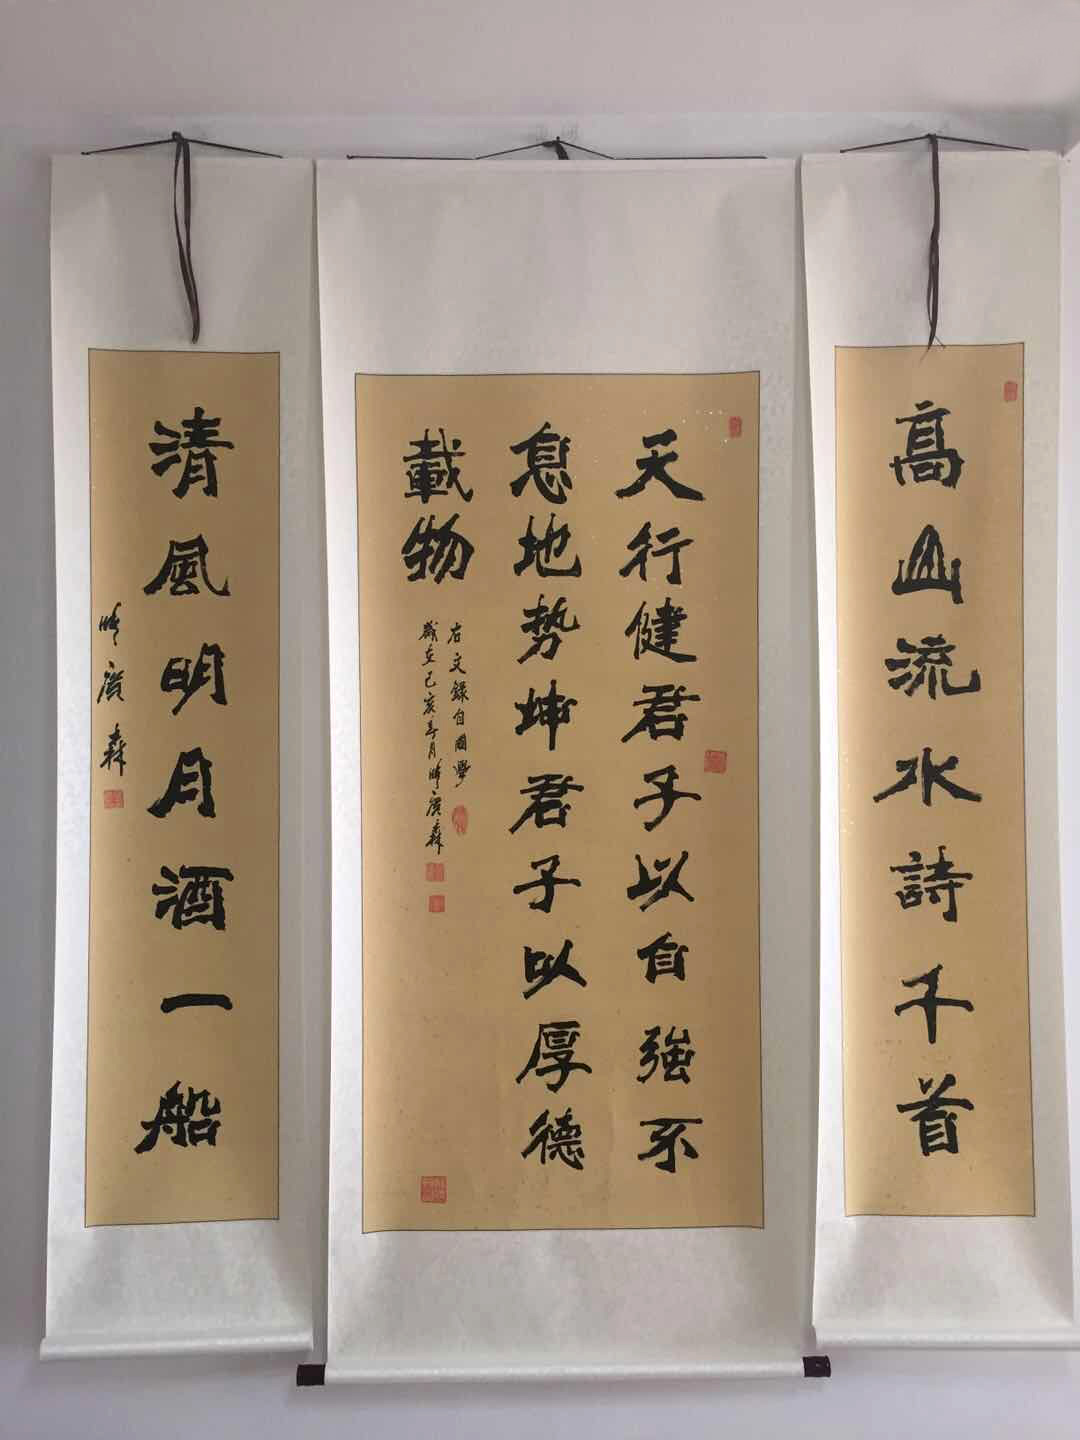 高山流水詩千首
天行健君子以自強不
息地势坤君子以厚德
載物
右文錄自國學
歲在己亥春月廣森
清風明月酒一船
廣森